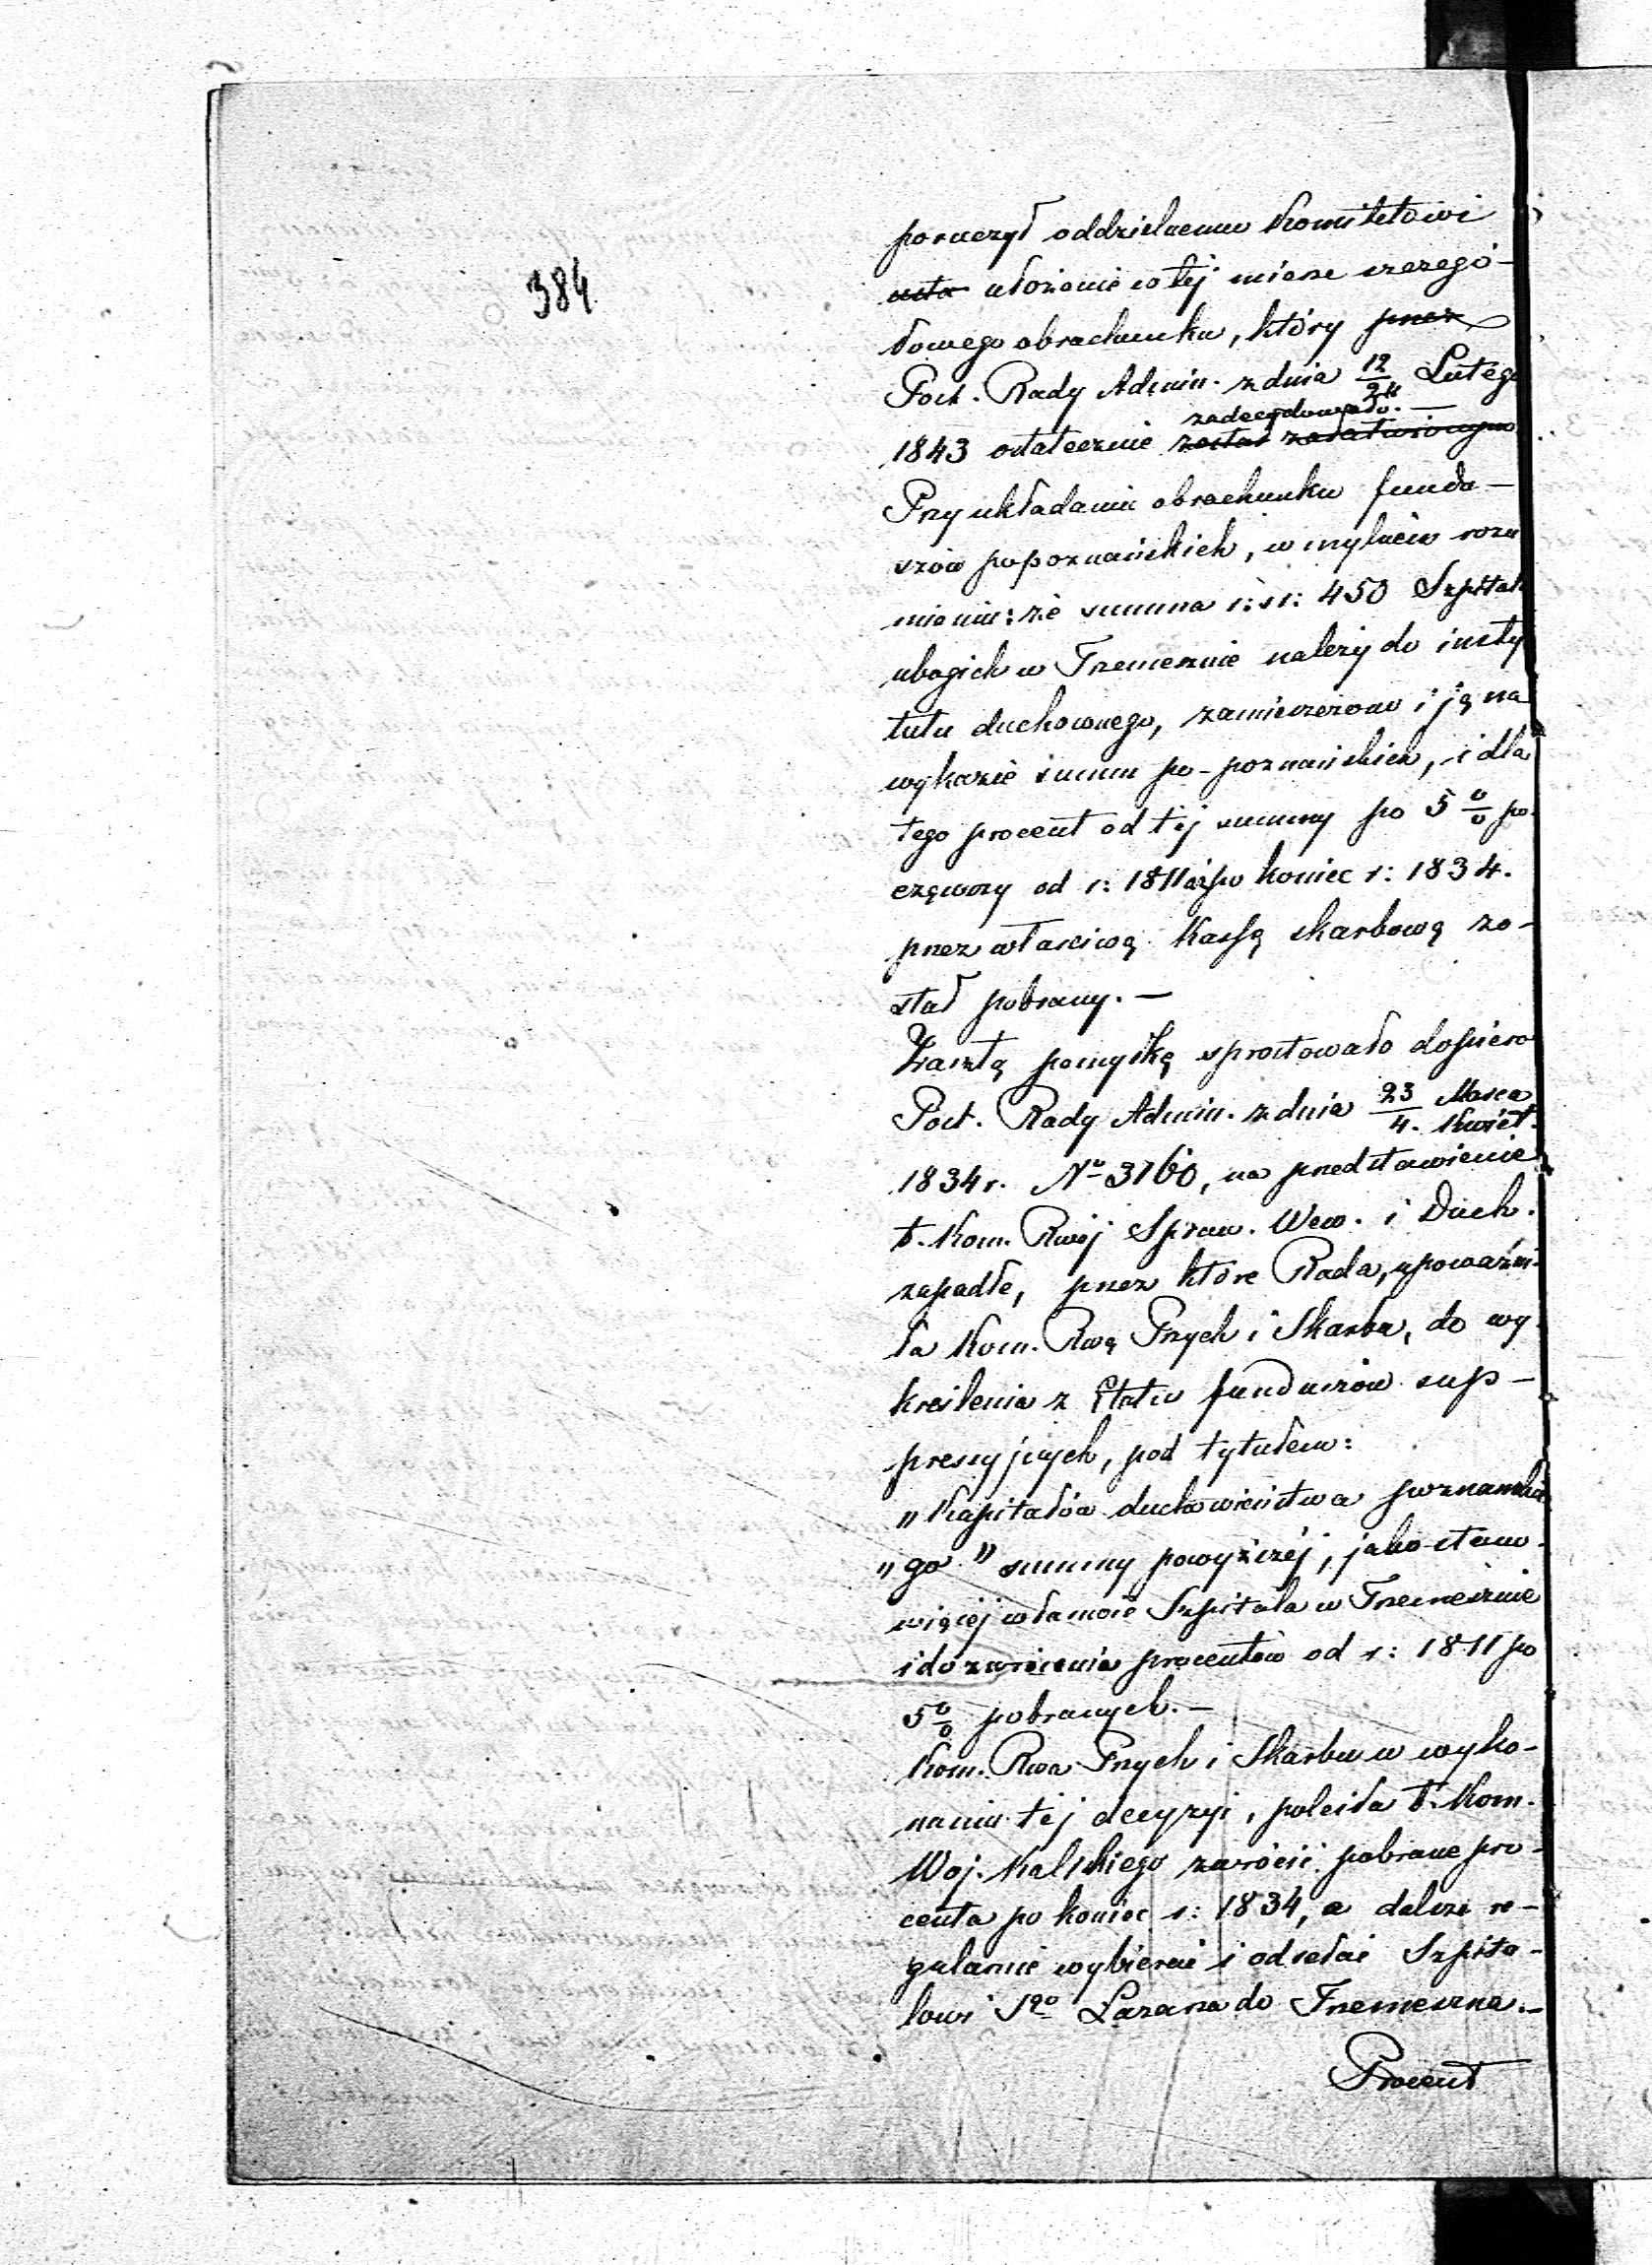 384
poruczył oddzielnemu Komitetowi
usta ułożenie w tej mierze szczegó-
łowego obrachunku, który przez
Post. Rady Admin. z dnia 12/24 Lutego
zadecydowało. —
1843 ostatecznie został załatwionym
Przy układaniu obrachunku fundu-
szów popoznańskich, w mylném rozu
mieniu: że summa r: sr: 450 Szpitala
ubogich w Trzemesznie należy do insty
tutu duchownego, zamieszczono i ją na
wykazie summ po-poznańskich, i dla
tego procent od téj summy po 5 0/0 po-
cząwszy od r: 1811 aż po koniec r: 1834.
przez właściwą Kassę skarbową zo-
stał pobrany. —
Zaszłą pomyłkę sprostowało dopiero
Post. Rady Admin. z dnia 23 Marca/4. Kwiet.
1834 r. No 3160, na przedstawienie
b. Kom. Rwéj Spraw. Wew. i Duch.
zapadłe, przez które Rada, upoważni-
ła Kom. Rwą Przych i Skarbu, do wy-
kreślenia z Etatu funduszów sup-
pressyjnych, pod tytułem:
„Kapitałów duchowieństwa poznańskie
„go" summy powyższéj, jako stano-
wiącéj własność Szpitala w Trzemesznie
i do zwrócenia procentów od r: 1811 po
5 0/0 pobranych. —
Kom. Rwa Przych i Skarbu w wyko-
naniu téj decyzyi, poleciła b. Kom.
Woj. Kalskiego zwrócić pobrane pro-
centa po koniec r: 1834, a dalsze re-
gularnie wybierać i odsełać Szpita-
lowi Sgo Łazarza do Trzemeszna. —
Procent